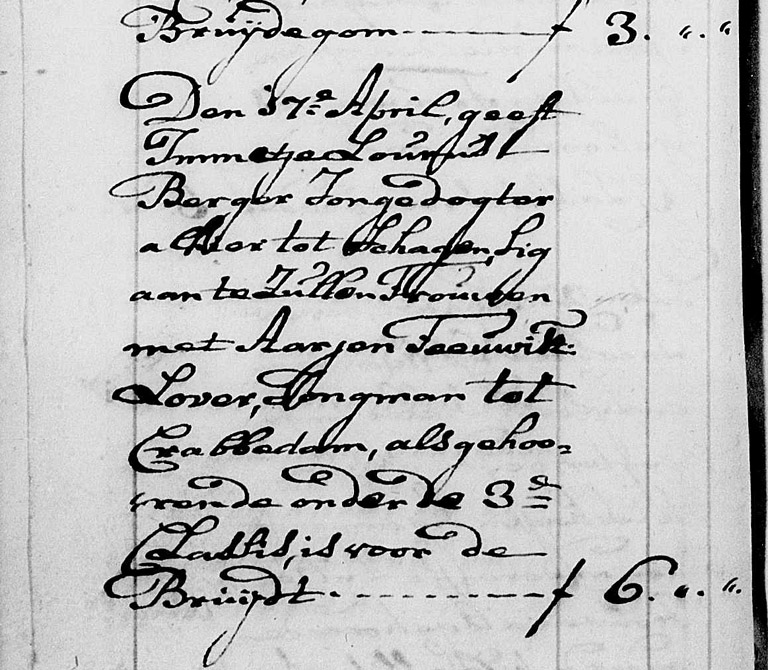 Bruÿdegom ------ f 3. „. „
Den 17e April, geeft
Immetje Louwrist
Berger Jongedogter
alhier tot Schagen, Sig
aan te Zullen Trouwen
met Aarjen Teeuwisz:
Lover, Jongman tot
Crabbedam, als gehoo=
rende onder de 3e
Classis, is voor de
Bruijdt. ---------- f 6. „. „.